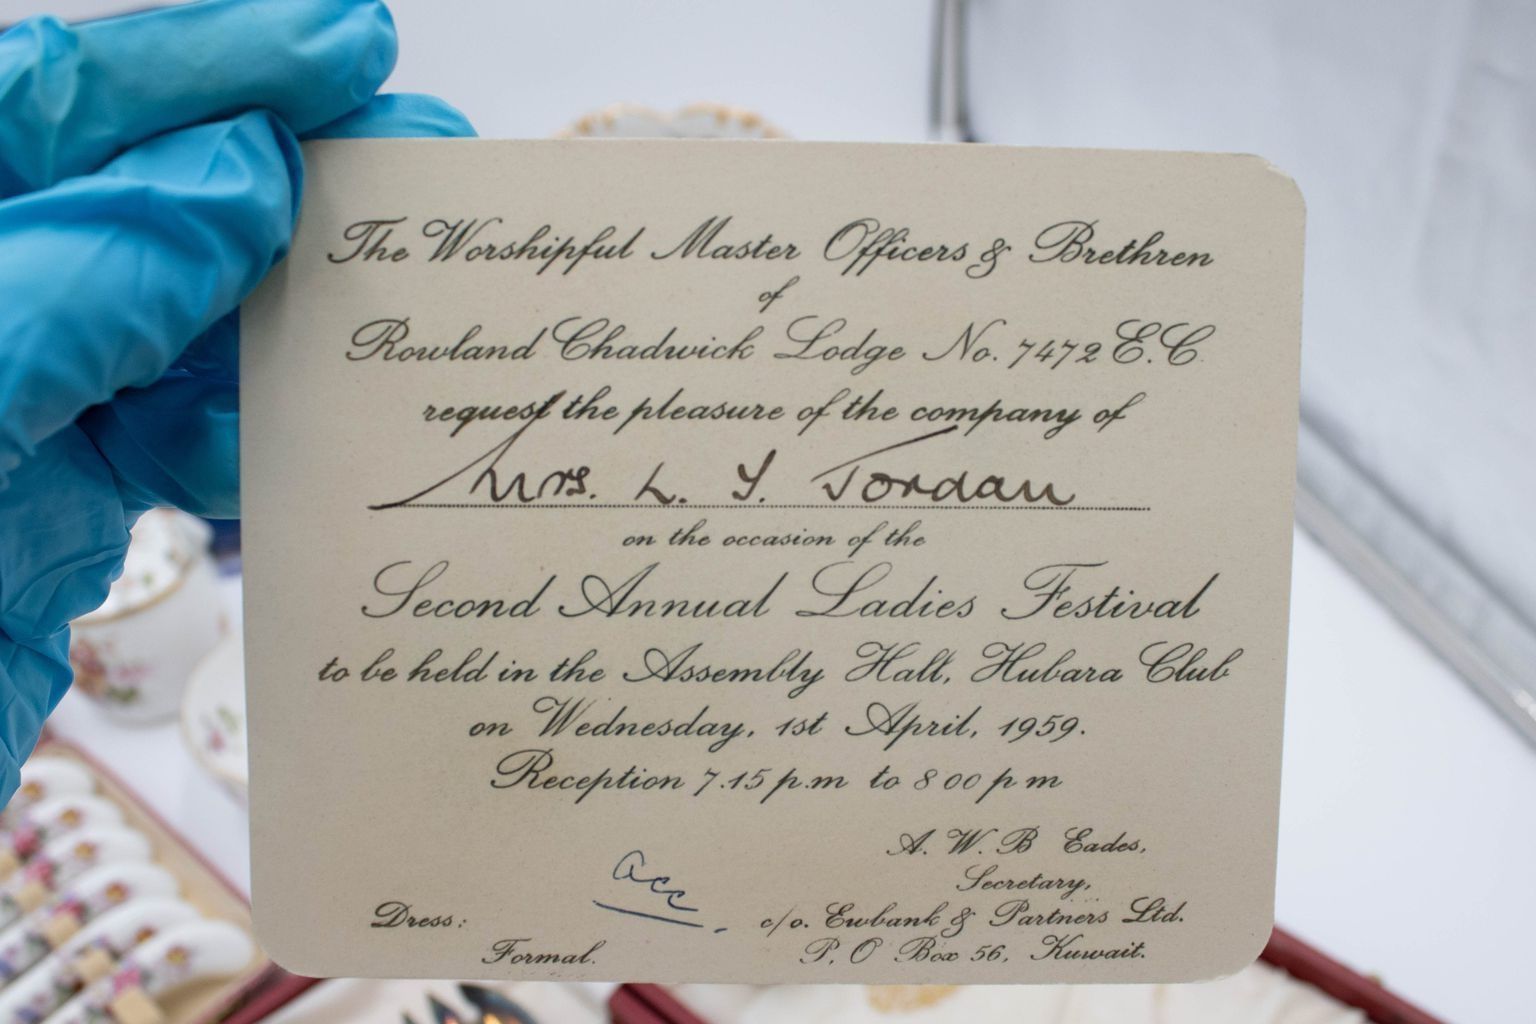 The Worshipful Master Officers & Brethren
of
Rowland Chadwick Lodge No. 7472 E.C.
request the pleasure of the company of
Mrs. L. Y. Jordan
on the occasion of the
Second Annual Ladies Festival
to be held in the Assembly Hall, Hubara Club
on Wednesday, 1st April, 1959.
Reception 7.15 p.m to 8 00 p m
A. W. B Eades,
Secretary,
acc.
Dress:
Formal.
c/o. Ewbank & Partners Ltd.
P. O Box 56, Kuwait.